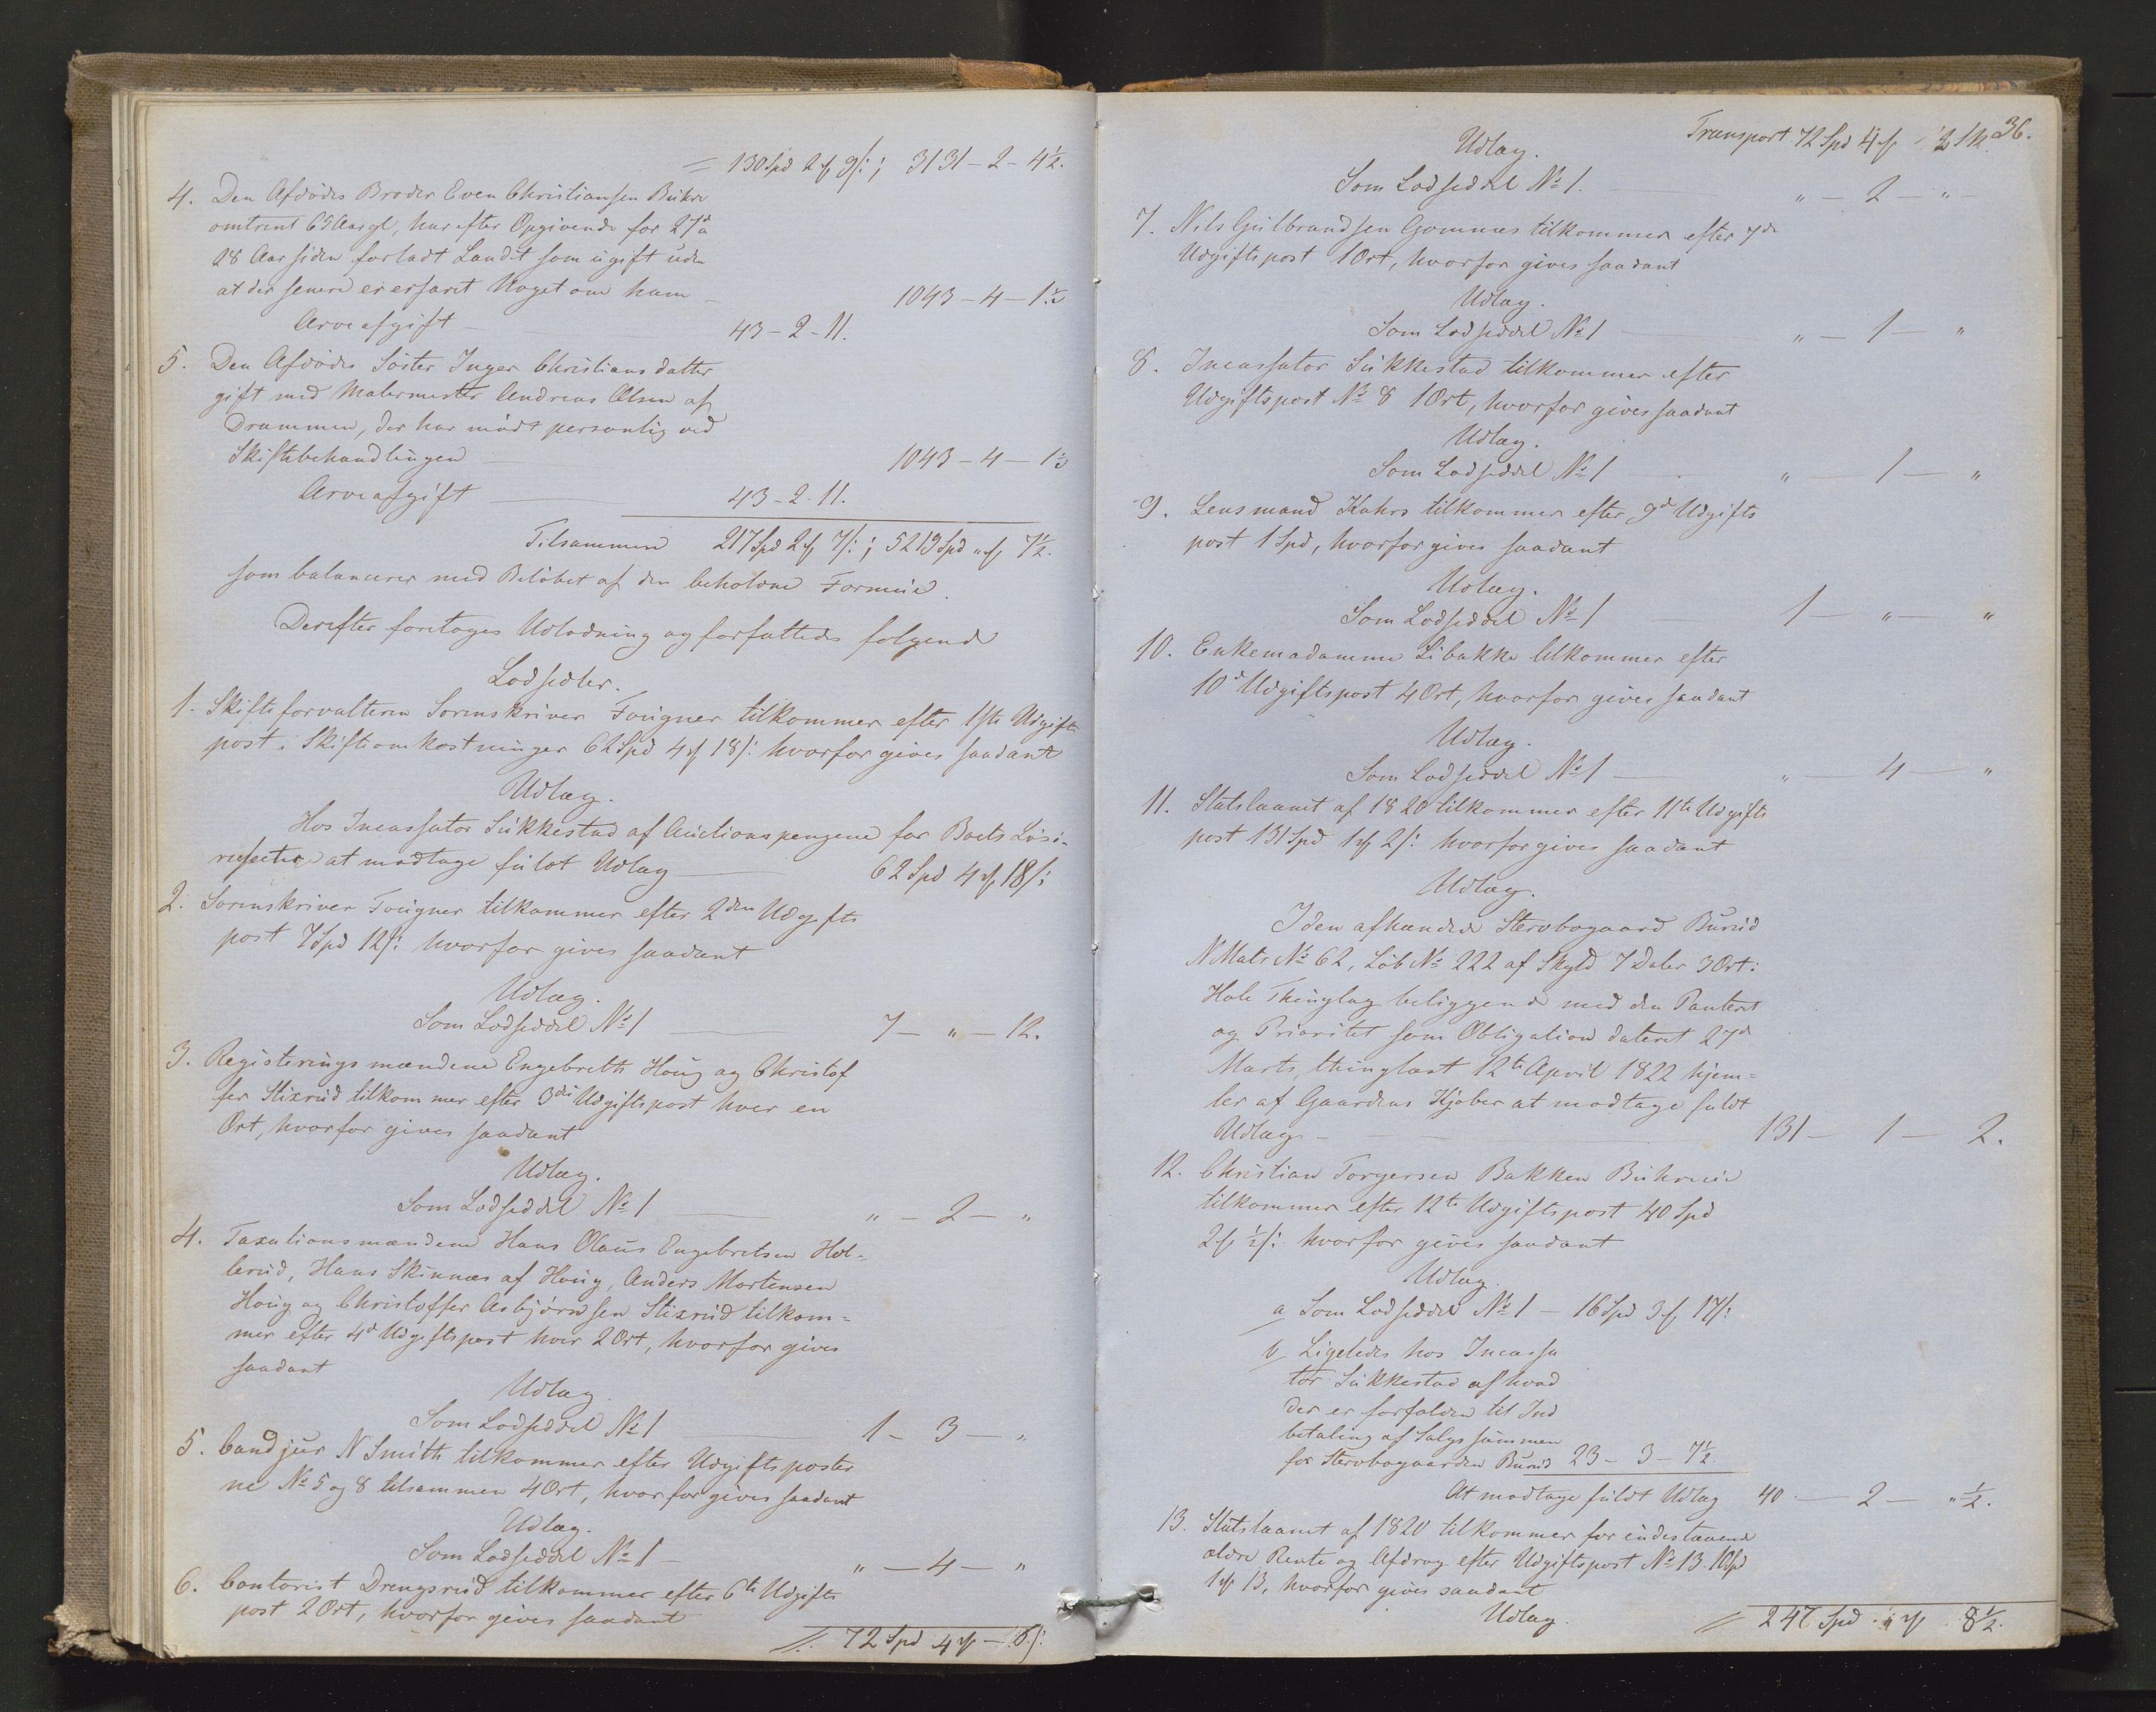 = 130 Spd 2 ß 9 /: ; 3131 - 2 - 4 1/2.
4. Den Afdødes Broder Even Christiansen Buhre
omtrent 65 Aar gl, har efter Opgivende for 27 a
28 Aar siden forladt Landet som ugift uden
at der senere er erfaret Noget om ham — 1043 - 4 - 1 1/2
Arveafgift — 43 - 2 - 11.
5. Den Afdødes Söster Inger Christiansdatter
gift med Malermester Andreas Olsen af
Drammen, der har mødt personlig ved
Skiftebehandlingen — 1043 - 4 - 1 1/2
Arveafgift — 43 - 2 - 11.
Tilsammen 217 Spd 2 ß 7 /: ; 5219 Spd " ß 7 1/2.
som balancerer med Beløbet af den beholdne Formue.
Derefter foretages Udlodning og forfattedes følgende
Lodsedler.
1. Skifteforvalteren Sorenskriver Fougner tilkommer efter 1ste Udgifts
post i Skifteomkostninger 62 Spd 4 ß 18 /: hvorfor gives saadant
Udlæg.
Hos Incassator Sukkestad af Auctionspengene for Boets Løsö-
reeffecter at modtage fuldt Udlæg — 62 Spd 4 ß 18 /:
2. Sorenskriver Fougner tilkommer efter 2den Udgifts
post 7 Spd 12 /: hvorfor gives saadant
Udlæg.
Som Lodseddel No 1 — 7 — " — 12.
3. Registeringsmændene Engebreth Houg og Christof
fer Stixrud tilkommer efter 3die Udgiftspost hver en
Ort, hvorfor gives saadant
Udlæg.
Som Lodseddel No 1 — " — 2 — "
4. Taxationsmændene Hans Olaus Engebretsen Hol-
lerud, Hans Skinnæs af Houg, Anders Mortensen
Houg og Christoffer Asbjørnsen Stixrud tilkom=
mer efter 4d Udgiftspost hver 2 Ort, hvorfor gives
saadant
Udlæg.
Som Lodseddel No 1 — 1 — 3 — "
5. Cand jur N Smith tilkommer efter Udgiftsposter
ne No 5 og 8 tilsammen 4 Ort, hvorfor gives saadant
Udlæg.
Som Lodseddel No 1 — " — 4 — "
6. Contorist Drengsrud tilkommer efter 6te Udgifts
post 2 Ort, hvorfor gives saadant
72 Spd 4 ß — 6 /:
36.
Transport 72 Spd 4 ß
Udlæg.
Som Lodseddel No 1. — " — 2 — "
7. Nils Gulbrandsen Gomnæs tilkommer efter 7de
Udgiftspost 1 Ort, hvorfor gives saadant
Udlæg.
Som Lodseddel No 1 — " — 1 — "
8. Incassator Sukkestad tilkommer efter
Udgiftspost No 8 1 Ort, hvorfor gives saadant
Udlæg.
Som Lodseddel No 1 — " — 1 — "
9. Lensmand Kuhrs tilkommer efter 9d Udgifts
post 1 Spd, hvorfor gives saadant
Udlæg.
Som Lodseddel No 1 — 1 — " — "
10. Enkemadamme Libakke tilkommer efter
10d Udgiftspost 4 Ort, hvorfor gives saadant
Udlæg.
Som Lodseddel No 1 — " 4 — "
11. Statslaanet af 1820 tilkommer efter 11te Udgifts
post 131 Spd 1 ß 2 /: hvorfor gives saadant
Udlæg.
I den afhændede Stervbogaard Burud
N Matr No 62, Løb No 222 af Skyld 7 Daler 3 Ort i
Hole Thinglag beliggende med den Panteret
og Prioritet som Obligation dateret 27d
Marts, thinglæst 12te April 1822 hjem=
ler af Gaardens Kjøber at modtage fuldt
Udlæg — 131 — 1 — 2.
12. Christian Torgersen Bakken Buhreeie
tilkommer efter 12te Udgiftspost 40 Spd
2 ß 1/2 /: hvorfor gives saadant
Udlæg.
a Som Lodseddel No 1 — 16 Spd 3 ß 17 /:
b Ligeledes hos Incassa
tor Sukkestad af hvad
der er forfalden til Ind
betaling af Salgssummen
for Stervbogaarden Burud 23 - 3 - 7 1/2
At modtage fuldt Udlæg 40 — 2 — " 1/2.
13. Statslaanet af 1820 tilkommer for indestaaende
ældre Rente og Afdrag efter Udgiftspost No 13 10 Spd
1 ß 13, hvorfor gives saadant
Udlæg.
247 Spd 1 ß 8 1/2.